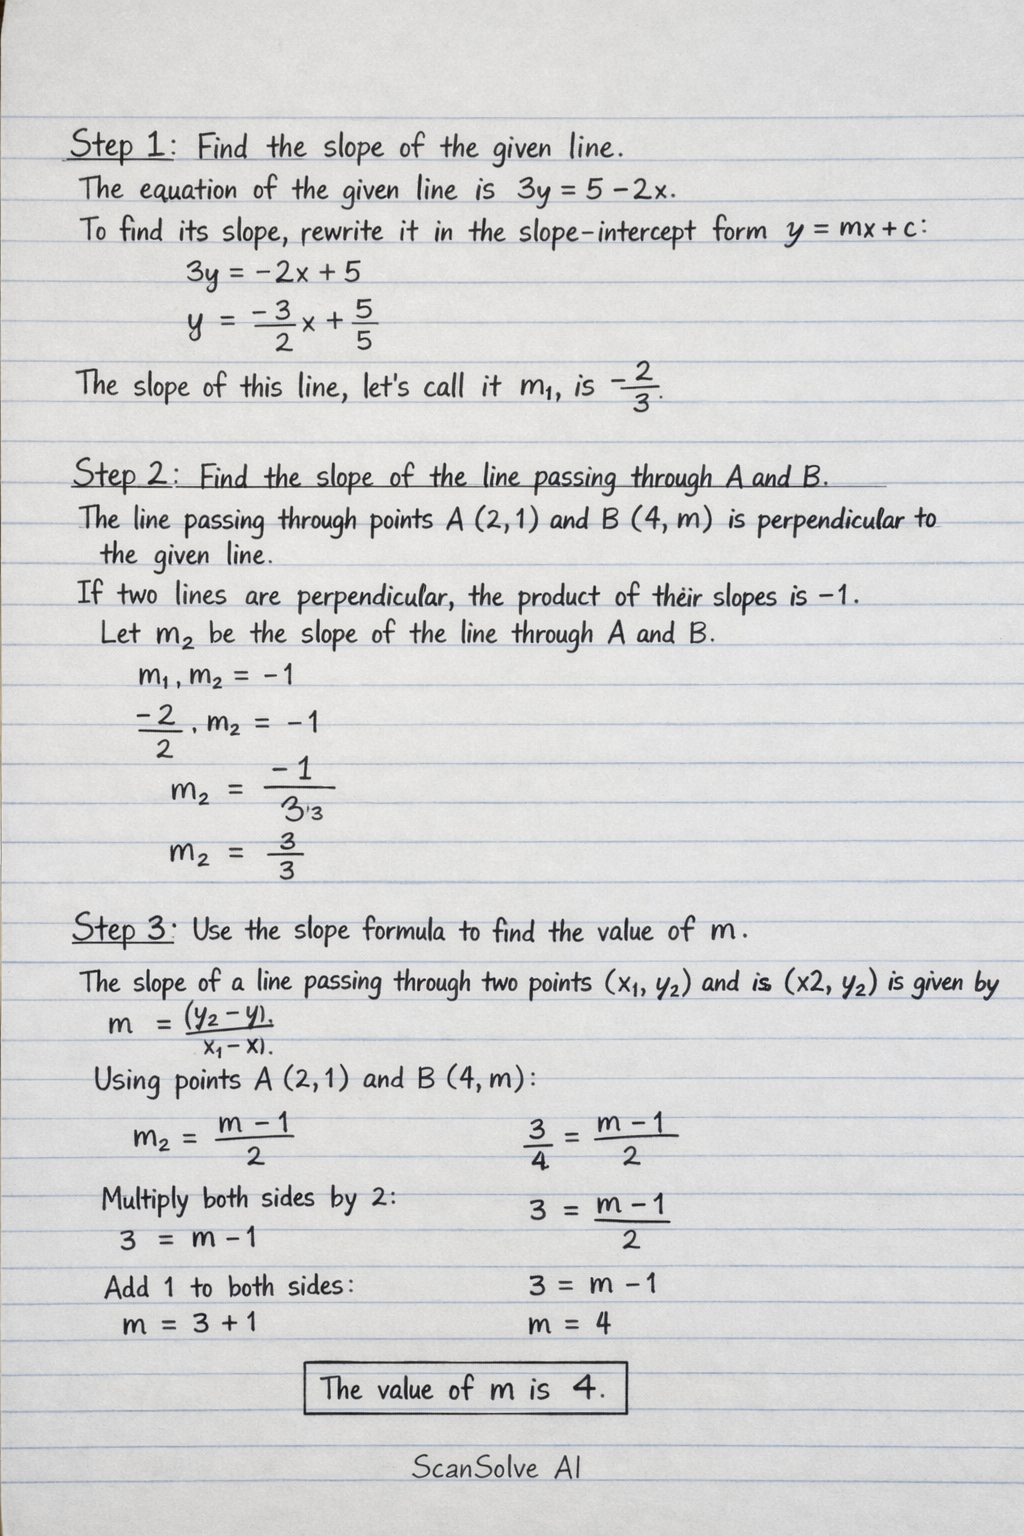 Step 1: Find the slope of the given line.
The equation of the given line is 3y = 5 - 2x.
To find its slope, rewrite it in the slope-intercept form y = mx + c:
3y = -2x + 5
y = -3/2 x + 5/5
The slope of this line, let's call it m₁, is -2/3.
Step 2: Find the slope of the line passing through A and B.
The line passing through points A (2,1) and B (4, m) is perpendicular to
the given line.
If two lines are perpendicular, the product of their slopes is -1.
Let m₂ be the slope of the line through A and B.
m₁, m₂ = -1
-2/2 . m₂ = -1
m₂ = -1/3'3
m₂ = 3/3
Step 3: Use the slope formula to find the value of m.
The slope of a line passing through two points (x₁, y₂) and is (x2, y₂) is given by
m = (y₂ - y). / x₁ - x).
Using points A (2,1) and B (4, m):
m₂ = m - 1/2
3/4 = m - 1/2
Multiply both sides by 2:
3 = m - 1/2
3 = m - 1
Add 1 to both sides:
3 = m - 1
m = 3 + 1
m = 4
The value of m is 4.
ScanSolve AI